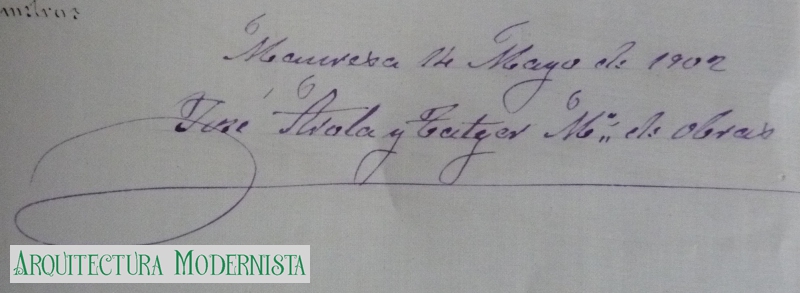 Manresa 14 Mayo de 1902
José Firola y Tatger Mº. de obras
ARQUITECTURA MODERNISTA